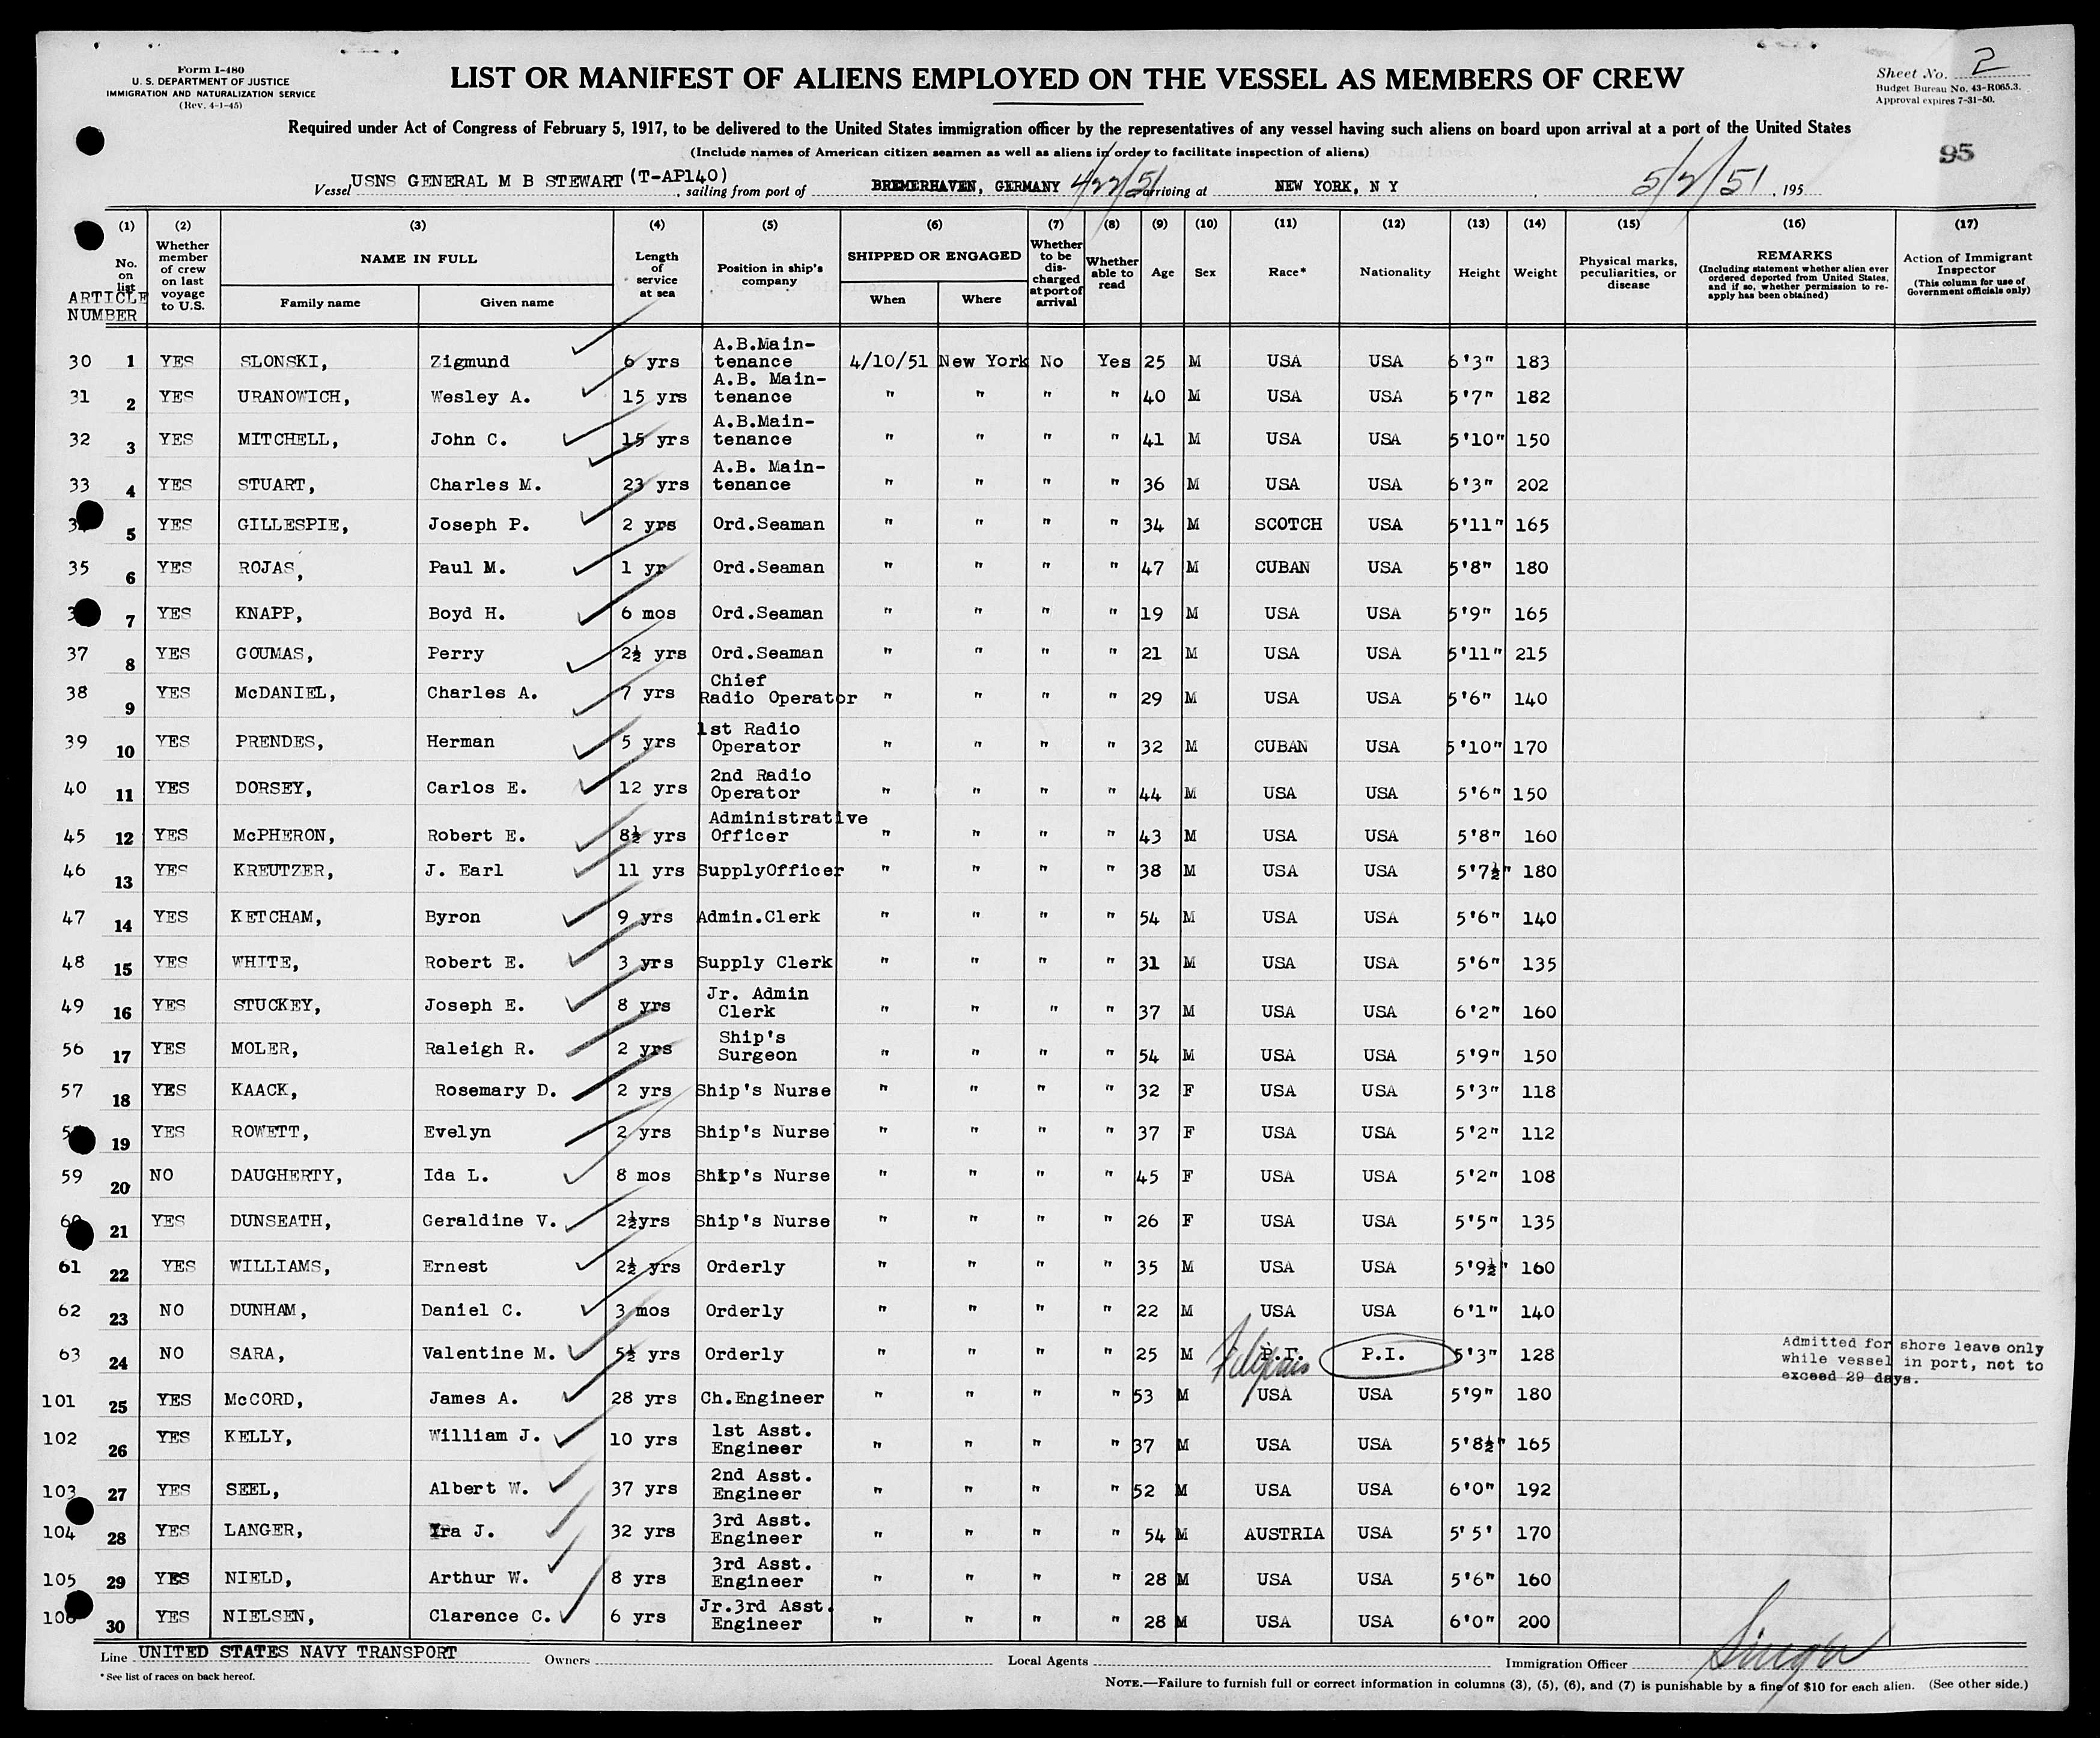 Form I-480
U. S. DEPARTMENT OF JUSTICE
IMMIGRATION AND NATURALIZATION SERVICE
(Rev. 4-1-45)
LIST OR MANIFEST OF ALIENS EMPLOYED ON THE VESSEL AS MEMBERS OF CREW
Sheet No. 2
Budget Bureau No. 43-R065.3.
Approval expires 7-31-50.
Required under Act of Congress of February 5, 1917, to be delivered to the United States immigration officer by the representatives of any vessel having such aliens on board upon arrival at a port of the United States
(Include names of American citizen seamen as well as aliens in order to facilitate inspection of aliens)
95
Vessel USNS GENERAL M B STEWART (T-AP140), sailing from port of BREMERHAVEN, GERMANY 4/22/51 arriving at NEW YORK, N Y 5/2/51, 195
(1) (2) (3) (4) (5) (6) (7) (8) (9) (10) (11) (12) (13) (14) (15) (16) (17)
No. on list
ARTICLE NUMBER
Whether member of crew on last voyage to U.S.
NAME IN FULL
Family name Given name
Length of service at sea
Position in ship's company
SHIPPED OR ENGAGED
When Where
Whether to be discharged at port of arrival
Whether able to read
Age Sex Race* Nationality Height Weight
Physical marks, peculiarities, or disease
REMARKS
(Including statement whether alien ever ordered deported from United States, and if so, whether permission to reapply has been obtained)
Action of Immigrant Inspector
(This column for use of Government officials only)
30 1 YES SLONSKI, Zigmund 6 yrs A.B.Main-tenance 4/10/51 New York No Yes 25 M USA USA 6'3" 183
31 2 YES URANOWICH, Wesley A. 15 yrs A.B. Main-tenance " " " " 40 M USA USA 5'7" 182
32 3 YES MITCHELL, John C. 15 yrs A.B.Main-tenance " " " " 41 M USA USA 5'10" 150
33 4 YES STUART, Charles M. 23 yrs A.B. Main-tenance " " " " 36 M USA USA 6'3" 202
5 YES GILLESPIE, Joseph P. 2 yrs Ord.Seaman " " " " 34 M SCOTCH USA 5'11" 165
35 6 YES ROJAS, Paul M. 1 yr Ord.Seaman " " " " 47 M CUBAN USA 5'8" 180
7 YES KNAPP, Boyd H. 6 mos Ord.Seaman " " " " 19 M USA USA 5'9" 165
37 8 YES GOUMAS, Perry 2½ yrs Ord.Seaman " " " " 21 M USA USA 5'11" 215
38 9 YES McDANIEL, Charles A. 7 yrs Chief Radio Operator " " " " 29 M USA USA 5'6" 140
39 10 YES PRENDES, Herman 5 yrs 1st Radio Operator " " " " 32 M CUBAN USA 5'10" 170
40 11 YES DORSEY, Carlos E. 12 yrs 2nd Radio Operator " " " " 44 M USA USA 5'6" 150
45 12 YES McPHERON, Robert E. 8½ yrs Administrative Officer " " " " 43 M USA USA 5'8" 160
46 13 YES KREUTZER, J. Earl 11 yrs SupplyOfficer " " " " 38 M USA USA 5'7½" 180
47 14 YES KETCHAM, Byron 9 yrs Admin.Clerk " " " " 54 M USA USA 5'6" 140
48 15 YES WHITE, Robert E. 3 yrs Supply Clerk " " " " 31 M USA USA 5'6" 135
49 16 YES STUCKEY, Joseph E. 8 yrs Jr. Admin Clerk " " " " 37 M USA USA 6'2" 160
56 17 YES MOLER, Raleigh R. 2 yrs Ship's Surgeon " " " " 54 M USA USA 5'9" 150
57 18 YES KAACK, Rosemary D. 2 yrs Ship's Nurse " " " " 32 F USA USA 5'3" 118
19 YES ROWETT, Evelyn 2 yrs Ship's Nurse " " " " 37 F USA USA 5'2" 112
59 20 NO DAUGHERTY, Ida L. 8 mos Ship's Nurse " " " " 45 F USA USA 5'2" 108
60 21 YES DUNSEATH, Geraldine V. 2½yrs Ship's Nurse " " " " 26 F USA USA 5'5" 135
61 22 YES WILLIAMS, Ernest 2½ yrs Orderly " " " " 35 M USA USA 5'9½" 160
62 23 NO DUNHAM, Daniel C. 3 mos Orderly " " " " 22 M USA USA 6'1" 140
63 24 NO SARA, Valentine M. 5½ yrs Orderly " " " " 25 M P.I. Filipino P.I. 5'3" 128 Admitted for shore leave only while vessel in port, not to exceed 29 days.
101 25 YES McCORD, James A. 28 yrs Ch.Engineer " " " " 53 M USA USA 5'9" 180
102 26 YES KELLY, William J. 10 yrs 1st Asst. Engineer " " " " 37 M USA USA 5'8½" 165
103 27 YES SEEL, Albert W. 37 yrs 2nd Asst. Engineer " " " " 52 M USA USA 6'0" 192
104 28 YES LANGER, Ira J. 32 yrs 3rd Asst. Engineer " " " " 54 M AUSTRIA USA 5'5' 170
105 29 YES NIELD, Arthur W. 8 yrs 3rd Asst. Engineer " " " " 28 M USA USA 5'6" 160
106 30 YES NIELSEN, Clarence C. 6 yrs Jr.3rd Asst. Engineer " " " " 28 M USA USA 6'0" 200
Line UNITED STATES NAVY TRANSPORT Owners Local Agents Immigration Officer
*See list of races on back hereof.
NOTE.—Failure to furnish full or correct information in columns (3), (5), (6), and (7) is punishable by a fine of $10 for each alien. (See other side.)